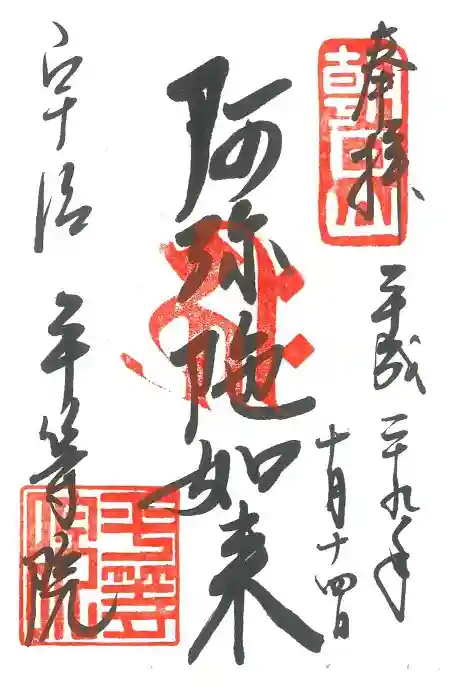 奉拝
平成二十九年
十月十四日
阿弥陀如来
宇治
平等院
朝日山
平等院